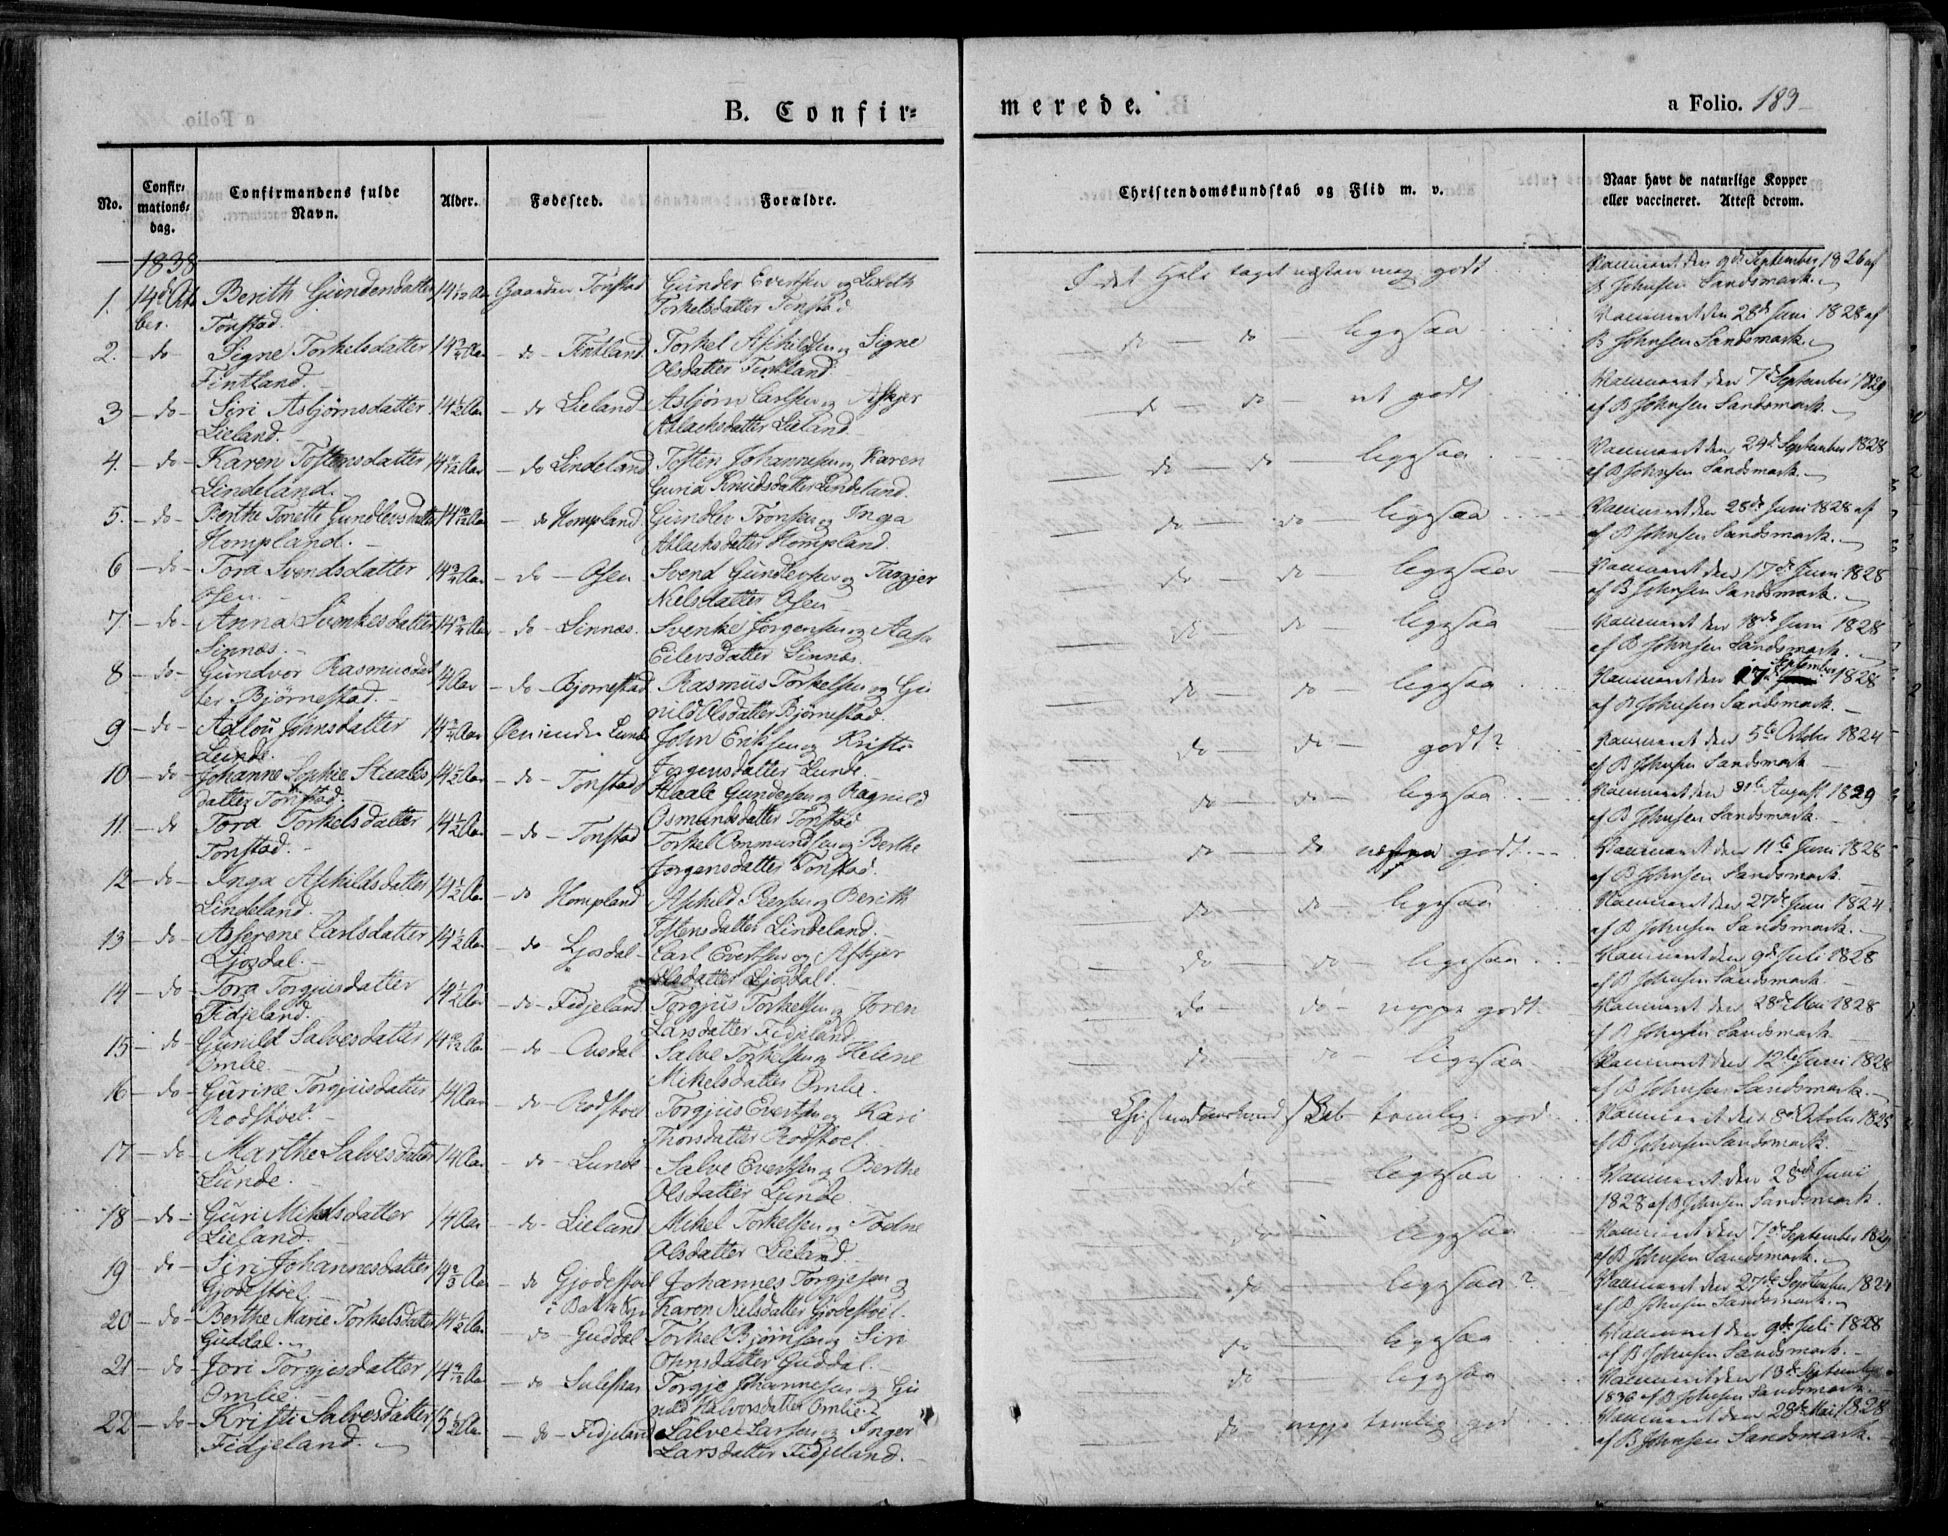 B. Confir=
merede.
a Folio. 189
No.
Confir=
mations=
dag.
Confirmandens fulde
Navn.
Alder.
Fødested.
Forældre.
Christendomskundskab og Flid m. v.
Naar havt de naturlige Kopper
eller vaccineret. Attest derom.
1838
1. 14d Octo Berith Gundersdatter 14 Aar Gaarden Tonstad Gunder Evertsen og Lisbeth
ber. Tonstad. Torkelsdatter Tonstad
I det Hele taget næsten meg godt
Vaccineret den 9de September 1826 af
B Johnsen Sandsmark.
2. - do - Signe Torkelsdatter 14 3/4 Aar - do - Fintland Torkel Aschildsen og Signe
Fintland. Olsdatter Fintland
do - do - ligesaa
Vaccineret den 28de Juni 1828 af
B Johnsen Sandsmark.
3 - do - Siri Asbjørnsdatter 14 1/2 Aar - do Lieland Asbjørn Carlsen og
Lieland. Atlaksdatter Lieland
do - do - godt
Vaccineret den 7de September 1829
af B Johnsen Sandsmark.
4. - do - Karen Tostensdatter Aar - do Lindeland Tosten Johannesen og Karen
Lindeland. Guria Knudsdatter Lindeland.
do - do - ligesaa
Vaccineret den 24de September 1828
af B Johnsen Sandsmark.
5. - do - Berthe Tonette Gundlevsdatter Aar - do Hompland Gundlev Tronsen og Inga
Hompland. Atlaksdatter Hompland.
do - do - ligesaa
Vaccineret den 28de Juni 1828 af
af B Johnsen Sandsmark.
6 - do - Tora Svendsdatter 14 3/4 Aar - do - Osen Svend Gundersen og
Osen. Nielsdatter Osen
do - do - ligesaa
Vaccineret den 17de Juni 1828
af B Johnsen Sandsmark.
7 - do - Anna Svenkesdatter 14 3/4 Aar - do - Sinnæs. Svenke Jørgensen og Aasa
Sinnæs. Eilevsdatter Sinnæs.
do - do ligesaa
Vaccineret den 18de Juni 1828
af B Johnsen Sandsmark.
8 - do - Gundvor Rasmusdat 14 Aar - do - Bjornestad Rasmus Torkelsen og Gu
ter Bjørnestad. nild Olsdatter Bjørnestad.
do - do - ligesaa
Vaccineret den 17de September 1828
af B Johnsen Sandsmark.
9 - do - Adlou Johnsdatter 14 3/4 Aar under Lunde John Eriksen og Kristi
Lunde. Jorgensdatter Lunde.
do - do - godt?
Vaccineret den 5te October 1824
af B Johnsen Sandsmark
10 - do - Johanne Sophie Staales 14 1/2 Aar - do - Tonstad Staale Gundersen og Ragnild
datter Tonstad. Osmundsdatter Tonstad
do - do - ligesaa
Vaccineret den 31te August 1829
af B Johnsen Sandsmark.
11. - do Tora Torkelsdatter 14 1/2 Aar - do - Tonstad Torkel Ommundsen og Berthe
Tonstad. Jorgensdatter Tonstad.
do - do godt
Vaccineret den 11te Juni 1828
af B Johnsen Sandsmark
12 - do - Inga Aschildsdatter 14 1/2 Aar - do Hompland Aschild Peersen og Berith
Lindeland. Tostensdatter Lindeland.
do - do - ligesaa
Vaccineret den 27de Juni 1824
af B Johnsen Sandsmark.
13 - do - Asserene Carlsdatter 14 1/2 Aar - do Ljosdal - Carl Evertsen og
Ljosdal. Olsdatter Ljosdal.
do - do - ligesaa
Vaccineret den 9de Juli 1828
af B Johnsen Sandsmark.
14 - do - Tora Torgjusdatter 14 1/2 Aar - do - Fidjeland. Torgjus Torkelsen og Joren
Fidjeland. Larsdatter Fidjeland
do - do - neppe godt.
Vaccineret den 28de Mai 1828
af B Johnsen Sandsmark
15 - do - Gunild Salvesdatter Aar - do - Ousdal Salve Torkelsen og Helene
Omlie. Mikelsdatter Omlie.
do - do - ligesaa
Vaccineret den 12te Juni 1828
af B Johnsen Sandsmark.
16 - do - Gurine Torgjusdatter 14 Aar - do - Rodstoel Torgjus Evertsen og Kari
Rodstoel. Thorsdatter Rodstoel
Christendomskundskab temlig god
Vaccineret den 8de October 1825
af B Johnsen Sandsmark.
17 - do - Marthe Salvesdatter 14 Aar - do - Lunde - Salve Evertsen og Berthe
Lunde. Olsdatter Lunde
ligesaa
Vaccineret den 28de Juni
1828 af B Johnsen Sandsmark.
18 - do - Guri Mikelsdatter 14 Aar - do - Lieland Mikel Torkelsen og Todne
Lieland. Olsdatter Lieland
do ligesaa
Vaccineret den 7de September 1829
af B Johnsen Sandsmark.
19 - do - Siri Johannesdatter 14 2/3 Aar - do Gjodestoel Johannes Torgjesen og
Gjodestoel i Bakke Karen Nielsdatter Gjodestoel.
do ligesaa?
Vaccineret den 27de September 1824
af B Johnsen Sandsmark.
20 - do - Berthe Marie Torkelsdatter 14 1/2 Aar - do - Guddal Torkel Bjørnsen og Siri
Guddal. Ohnsdatter Guddal.
do ligesaa
Vaccineret den 9de Juli 1828
af B Johnsen Sandsmark.
21 - do - Jori Torgjesdatter Aar - do Suleskar Torgje Johannesen og Gu
Omlie. nild Halvorsdatter Omlie
do ligesaa
Vaccineret den 13de September
1836 af B Johnsen Sandsmark.
22 - do - Kristi Salvesdatter 15 1/2 Aar - do - Fidjeland Salve Larsen og Inger
Fidjeland. Larsdatter Fidjeland.
do neppe temlig god
Vaccineret den 28de Mai 1828
af B Johnsen Sandsmark.